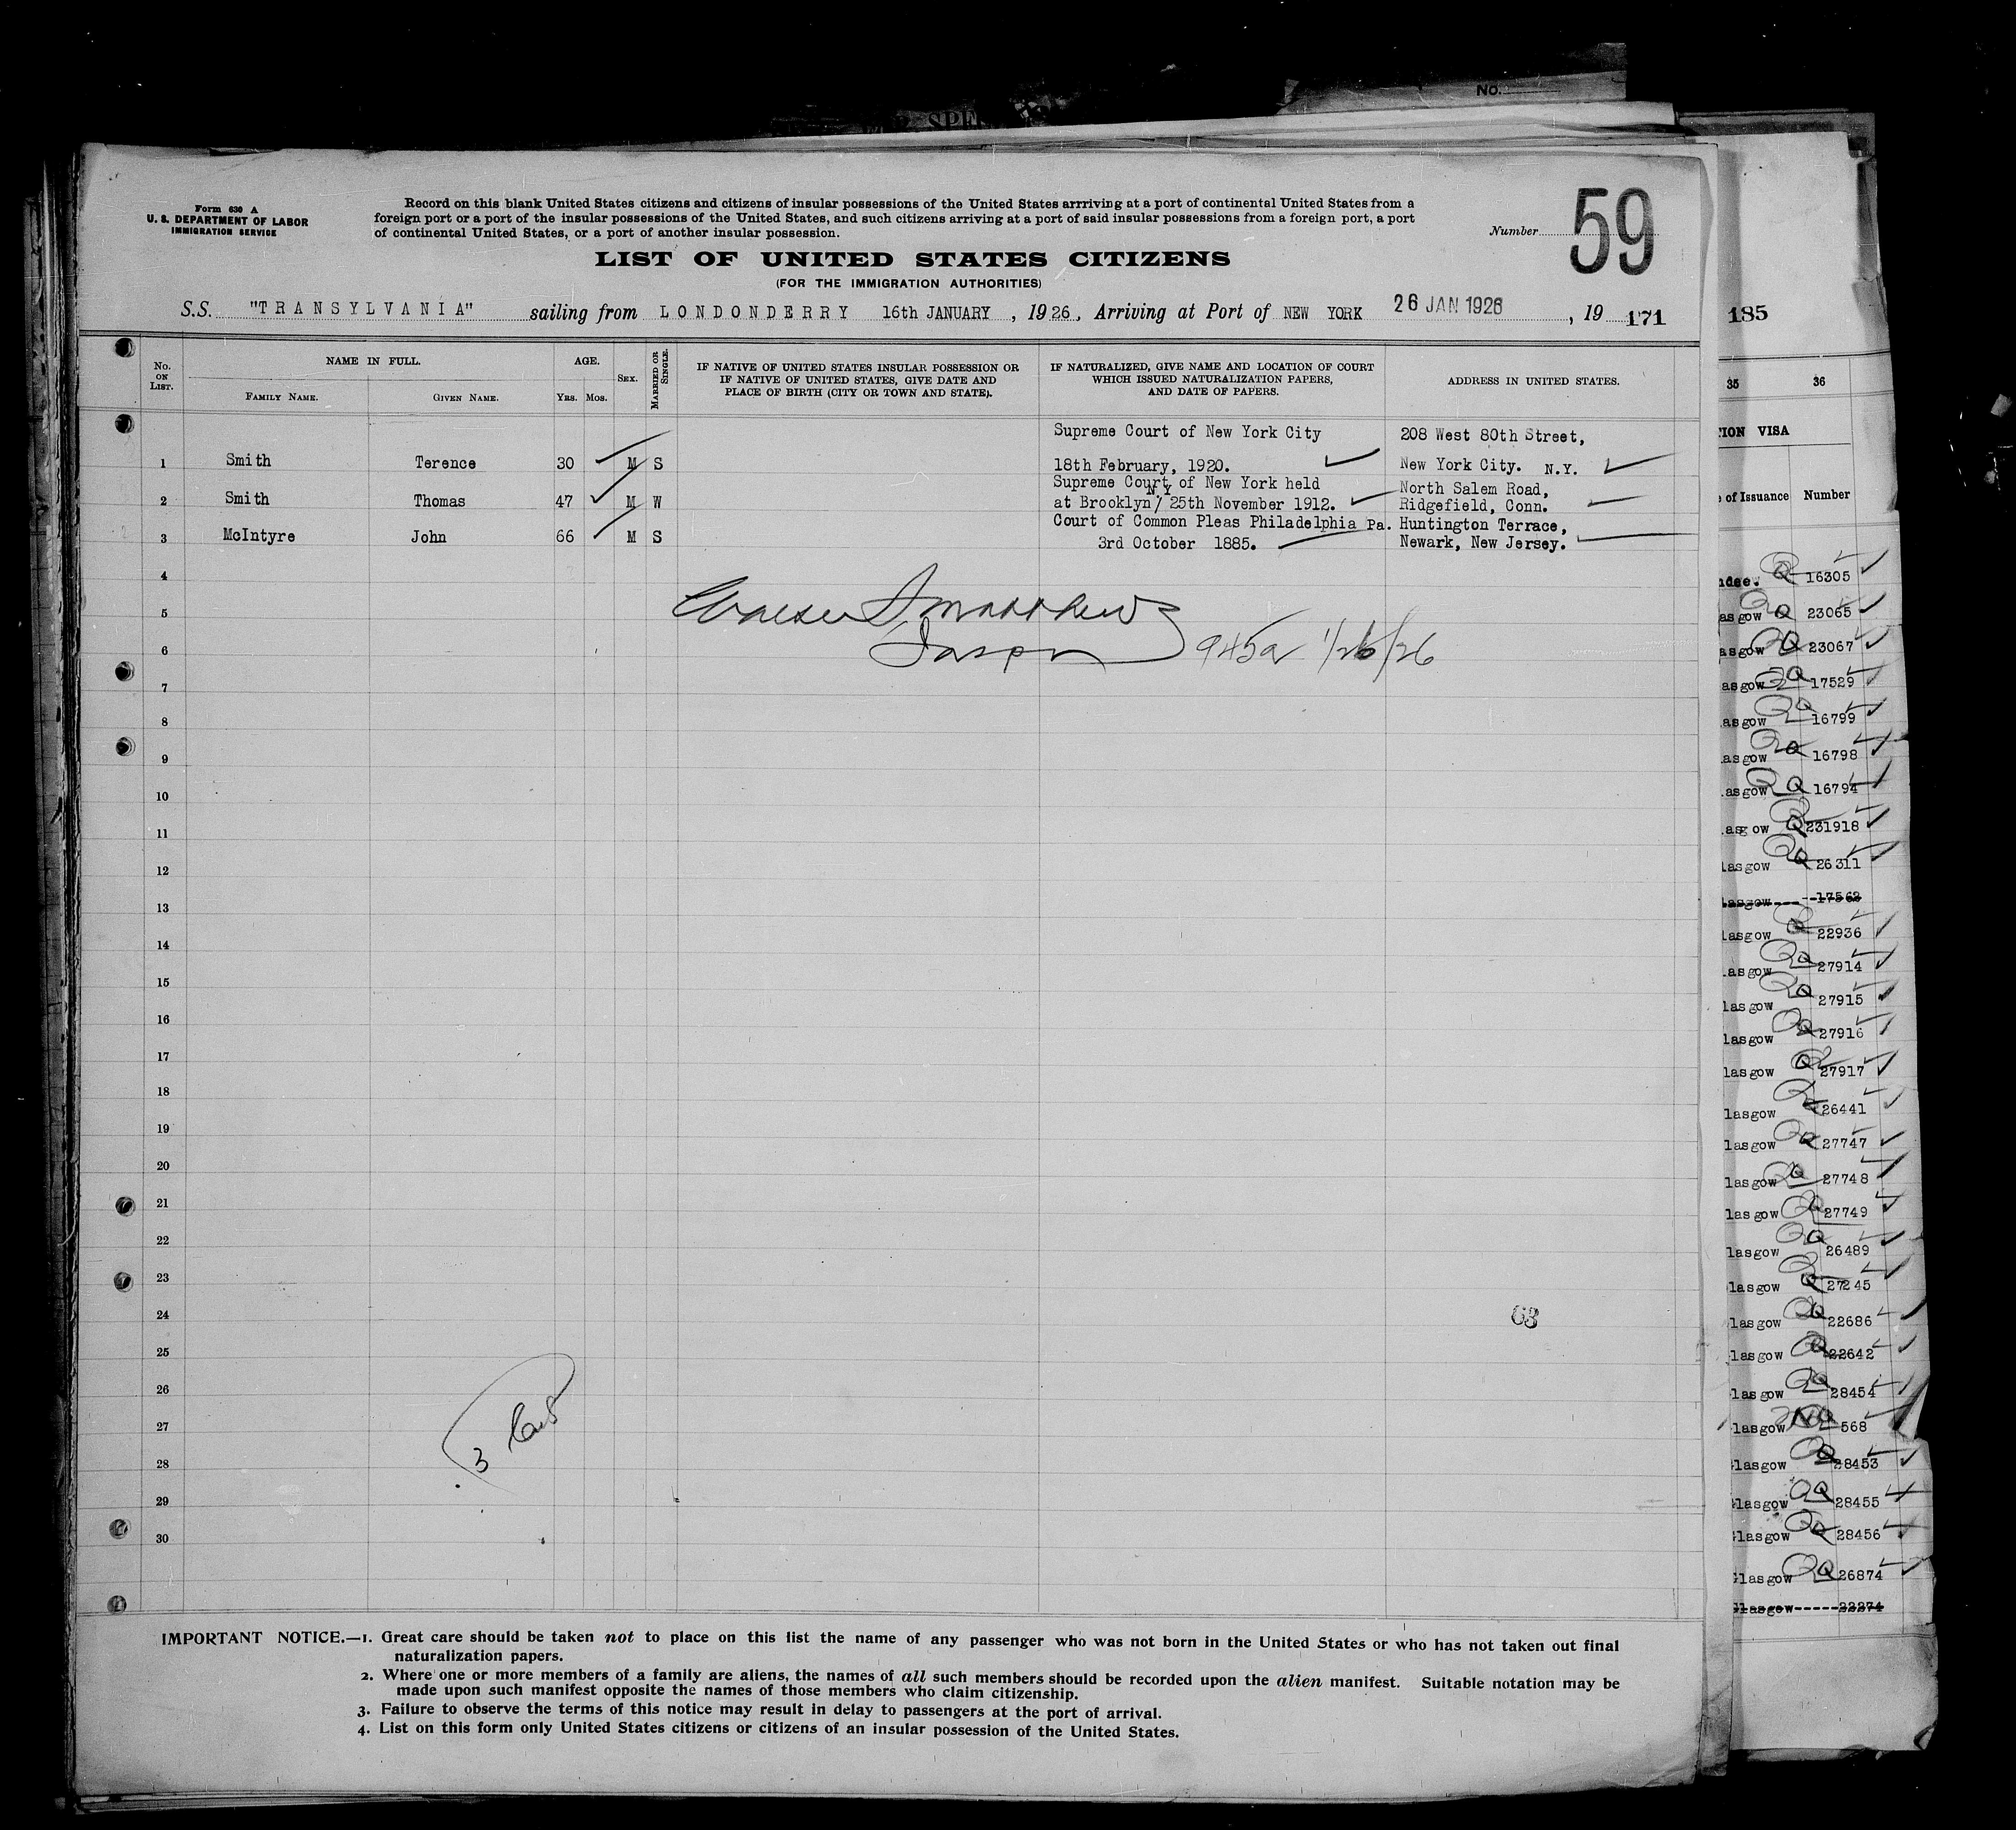 No.
SPE
Form 630 A
U. S. DEPARTMENT OF LABOR
IMMIGRATION SERVICE
Record on this blank United States citizens and citizens of insular possessions of the United States arrriving at a port of continental United States from a
foreign port or a port of the insular possessions of the United States, and such citizens arriving at a port of said insular possessions from a foreign port, a port
of continental United States, or a port of another insular possession.
Number 59
LIST OF UNITED STATES CITIZENS
(FOR THE IMMIGRATION AUTHORITIES)
S.S. "TRANSYLVANIA" sailing from LONDONDERRY 16th JANUARY, 1926, Arriving at Port of NEW YORK 26 JAN 1926, 19 171
No. ON LIST.
NAME IN FULL.
FAMILY NAME. GIVEN NAME.
AGE.
YRS. MOS.
SEX.
MARRIED OR SINGLE.
IF NATIVE OF UNITED STATES INSULAR POSSESSION OR
IF NATIVE OF UNITED STATES, GIVE DATE AND
PLACE OF BIRTH (CITY OR TOWN AND STATE).
IF NATURALIZED, GIVE NAME AND LOCATION OF COURT
WHICH ISSUED NATURALIZATION PAPERS,
AND DATE OF PAPERS.
ADDRESS IN UNITED STATES.
Supreme Court of New York City 208 West 80th Street,
1 Smith Terence 30 M S 18th February, 1920. New York City. N.Y.
Supreme Court of New York held North Salem Road,
2 Smith Thomas 47 M W at Brooklyn/ NY 25th November 1912. Ridgefield, Conn.
Court of Common Pleas Philadelphia Pa. Huntington Terrace,
3 McIntyre John 66 M S 3rd October 1885. Newark, New Jersey.
4
5 Matthews
6 945a 1/26/26
7
8
9
10
11
12
13
14
15
16
17
18
19
20
21
22
23
24 63
25
26
27
28 3
29
30
IMPORTANT NOTICE.—1. Great care should be taken not to place on this list the name of any passenger who was not born in the United States or who has not taken out final
naturalization papers.
2. Where one or more members of a family are aliens, the names of all such members should be recorded upon the alien manifest. Suitable notation may be
made upon such manifest opposite the names of those members who claim citizenship.
3. Failure to observe the terms of this notice may result in delay to passengers at the port of arrival.
4. List on this form only United States citizens or citizens of an insular possession of the United States.
185
35 36
TION VISA
e of Issuance Number
ndee. Q 16305
asgow Q 23065
asgow Q 23067
asgow Q 17529
asgow Q 16799
asgow Q 16798
asgow Q 16794
asgow Q 231918
lasgow Q 26311
lasgow 17562
lasgow Q 22936
lasgow Q 27914
lasgow Q 27915
lasgow Q 27916
lasgow Q 27917
lasgow Q 26441
lasgow Q 27747
lasgow Q 27748
lasgow Q 27749
lasgow Q 26489
lasgow Q 27245
lasgow Q 22686
lasgow Q 22642
lasgow Q 28454
lasgow NQ 568
lasgow Q 28453
Glasgow Q 28455
Glasgow Q 28456
Glasgow Q 26874
Glasgow-----22274